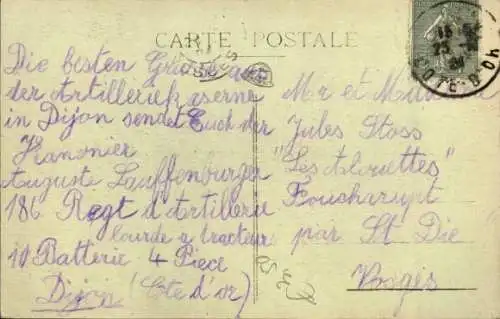 CARTE POSTALE
Die besten Grüsse aus
der Artilleriekaserne
in Dijon sendet Euch der
Kanonier
Auguste Lauffenburger
186 Regt d'Artillerie
lourde a tracteur
11 Batterie 4 Piece
Dijon (Côte d'or)
Mr et Madame
Jules Stoss
"Les Alouettes"
Foucharupt
par St Die
Vosges
CÔTE-D'OR